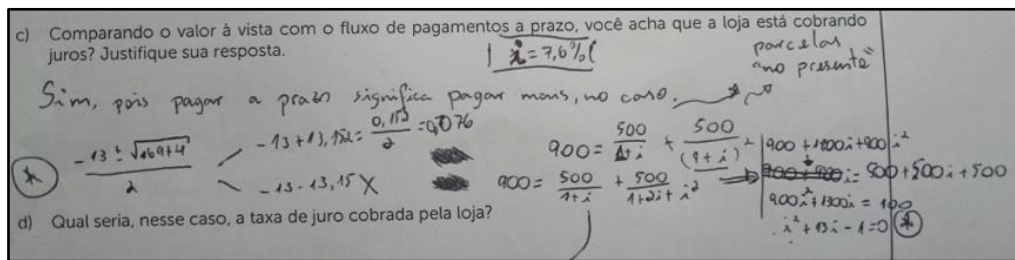 c) Comparando o valor à vista com o fluxo de pagamentos a prazo, você acha que a loja está cobrando
juros? Justifique sua resposta.
i = 7,6%
parcelas
"no presente"
Sim, pois pagar a prazo significa pagar mais, no caso.
* (-13 ± √169+4)/2
-13+13,152 = 0,152/2 = 0,076
-13-13,15 X
900 = 500/(1+i) + 500/(1+i)²
900 = 500/(1+i) + 500/(1+2i+i²)
900 + 1800i + 900i²
= 500 + 500i + 500
900i² + 1300i = 100
i² + 13i - 1 = 0 *
d) Qual seria, nesse caso, a taxa de juro cobrada pela loja?